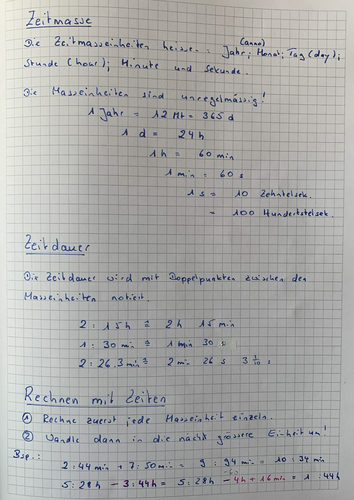 Zeitmasse
(anno)
Die Zeitmasseinheiten heissen: Jahr; Monat; Tag (day);
Stunde (hour); Minute und Sekunde.
Die Masseinheiten sind unregelmässig!
1 Jahr = 12 Mt = 365 d
1 d = 24 h
1 h = 60 min
1 min = 60 s
1 s = 10 Zehntelsek.
= 100 Hundertstelsek.
Zeitdauer
Die Zeitdauer wird mit Doppelpunkten zwischen den
Masseinheiten notiert.
2 : 15 h ≙ 2 h 15 min
1 : 30 min ≙ 1 min 30 s
2 : 26.3 min ≙ 2 min 26 s 3/10 s
Rechnen mit Zeiten
① Rechne zuerst jede Masseinheit einzeln.
② Wandle dann in die nächst grössere Einheit um!
Bsp.:
2 : 44 min + 7 : 50 min = 9 : 94 min = 10 : 34 min
5 : 28 h − 3 : 44 h = 5 : 28 h − 4 h + 16 min = 1 : 44 h